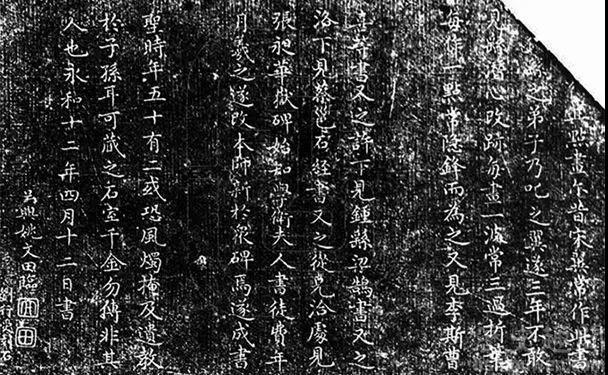 點畫尒昔宋翼常作此書
繇之弟子乃叱之翼遂三年不敢
見繇潛心改跡每畫一波常三過折筆
每作一點常隱鋒而為之又見李斯曹
喜等書又之許下見鍾繇梁鵠書又之
洛下見蔡邕石經書又之從兄洽處見
張昶華嶽碑始知學衛夫人書徒費年
月羲之遂改本師新於眾碑焉遂成書
聖時年五十有二或恐風燭掩及遺教
於子孫耳可藏之石室千金勿傳非其
人也永和十二年四月十二日書
吳興姚文田臨